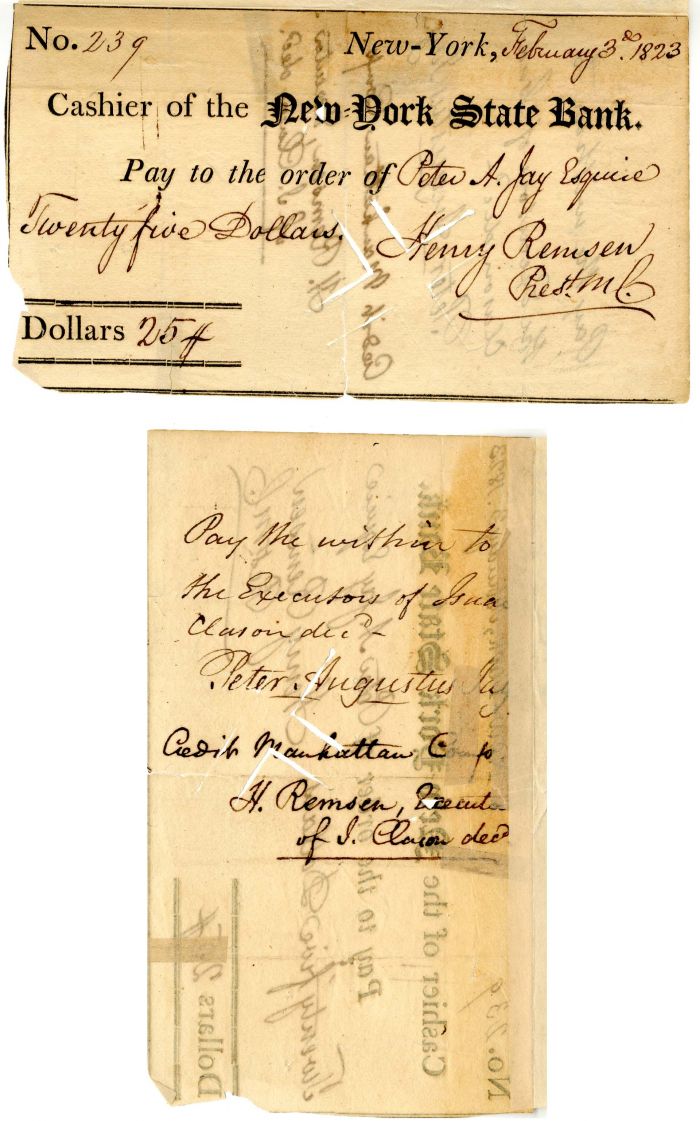 No. 239 New-York, February 3d. 1823
Cashier of the New-York State Bank.
Pay to the order of Peter A. Jay Esquire
Twenty five Dollars.
Henry Remsen
Prest. M C.
Dollars 25
Pay the within to
the Executors of Isaa
Clason decd
Peter Augustus Jay
Credit Manhattan Comp
H. Remsen, Executo
of I. Clason decd